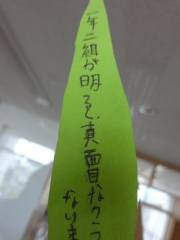 一年二組が明るく、真面目なクラ
なりま